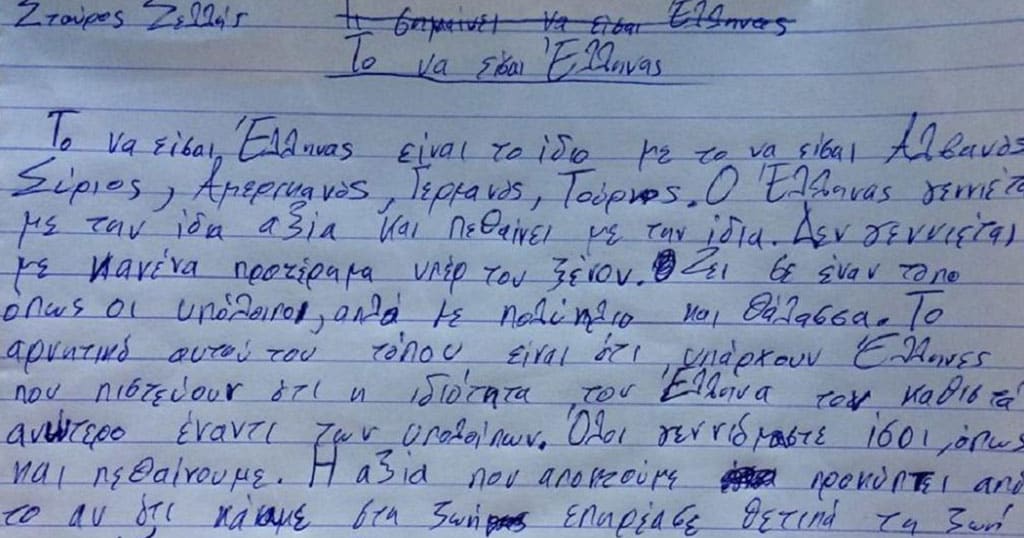 Σταύρος Ζελλής
Τι σημαίνει να είσαι Έλληνας
Το να είσαι Έλληνας
Το να είσαι Έλληνας είναι το ίδιο με το να είσαι Αλβανός
Σύριος, Αμερικανός, Γερμανός, Τούρκος. Ο Έλληνας γεννιέτα
με την ίδια αξία και πεθαίνει με την ίδια. Δεν γεννιέται
με κανένα προτέραμα υπέρ του ξένου. Ζει σε έναν τόπο
όπως οι υπόλοιποι, αλλά με πολύ ήλιο και θάλασσα. Το
αρνητικό αυτού του τόπου είναι ότι υπάρχουν Έλληνες
που πιστεύουν ότι η ιδιότητα του Έλληνα τον καθιστά
ανώτερο έναντι των υπολοίπων. Όλοι γεννιόμαστε ίσοι, όπως
και πεθαίνουμε. Η αξία που αποκτούμε προκύπτει από
το αν ότι κάναμε στη ζωή επηρέασε θετικά τη ζωή